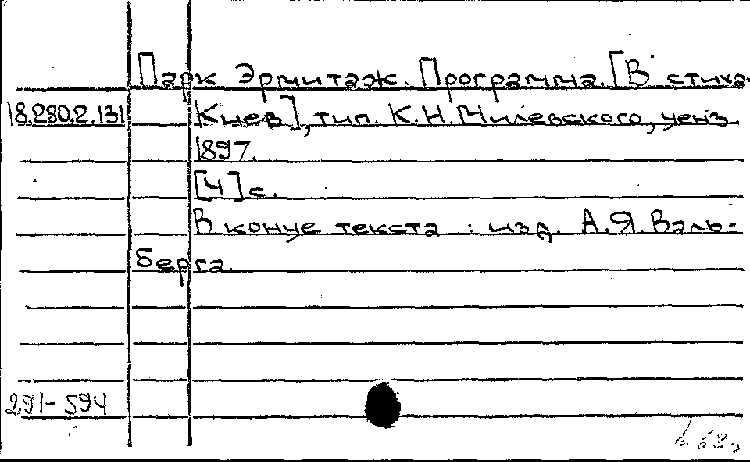 Парк Эрмитаж. Программа. [В стиха-
18.280.2.131 Киев], тип. К.Н. Милевского, ценз.
1897.
[4] с.
В конце текста : изд. А.Я. Валь-
берга.
291-594